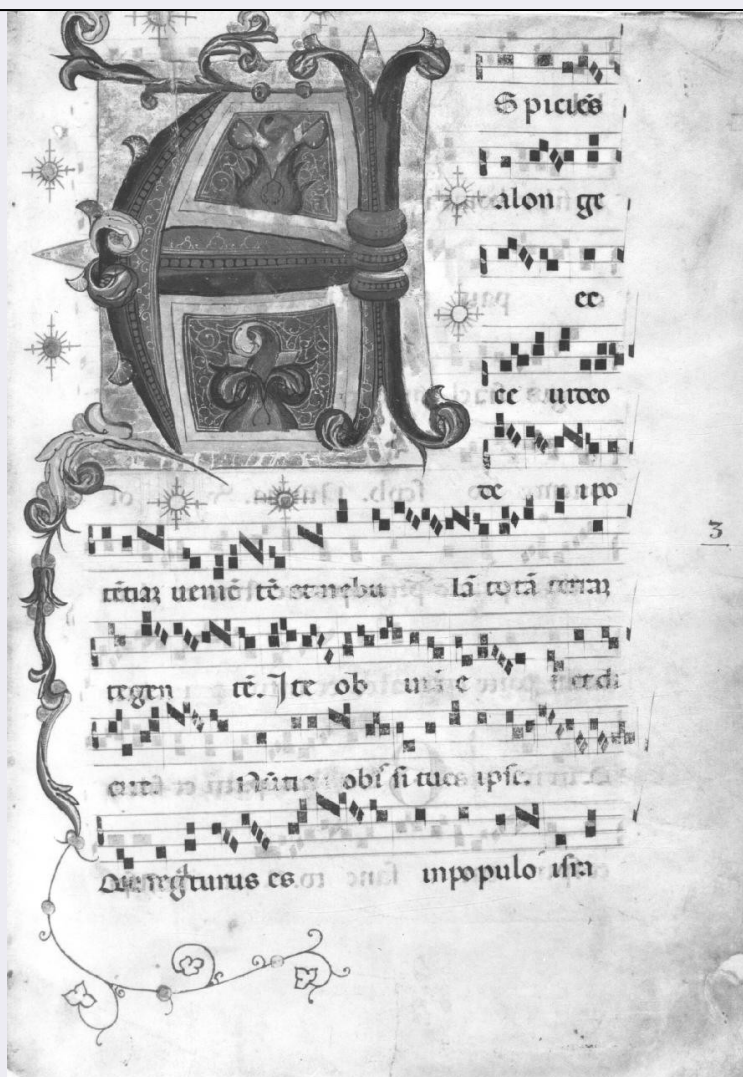 A Spiciēs
alon ge
ee
ee uideo
de ipo
tētiaꝝ ueniē tē et nebu lā totā terraꝝ
tegen tē. Ite ob uiā e i et di
cite. Nūtia obˢ si tu es ipse.
Qui regturus es in populo isra
3